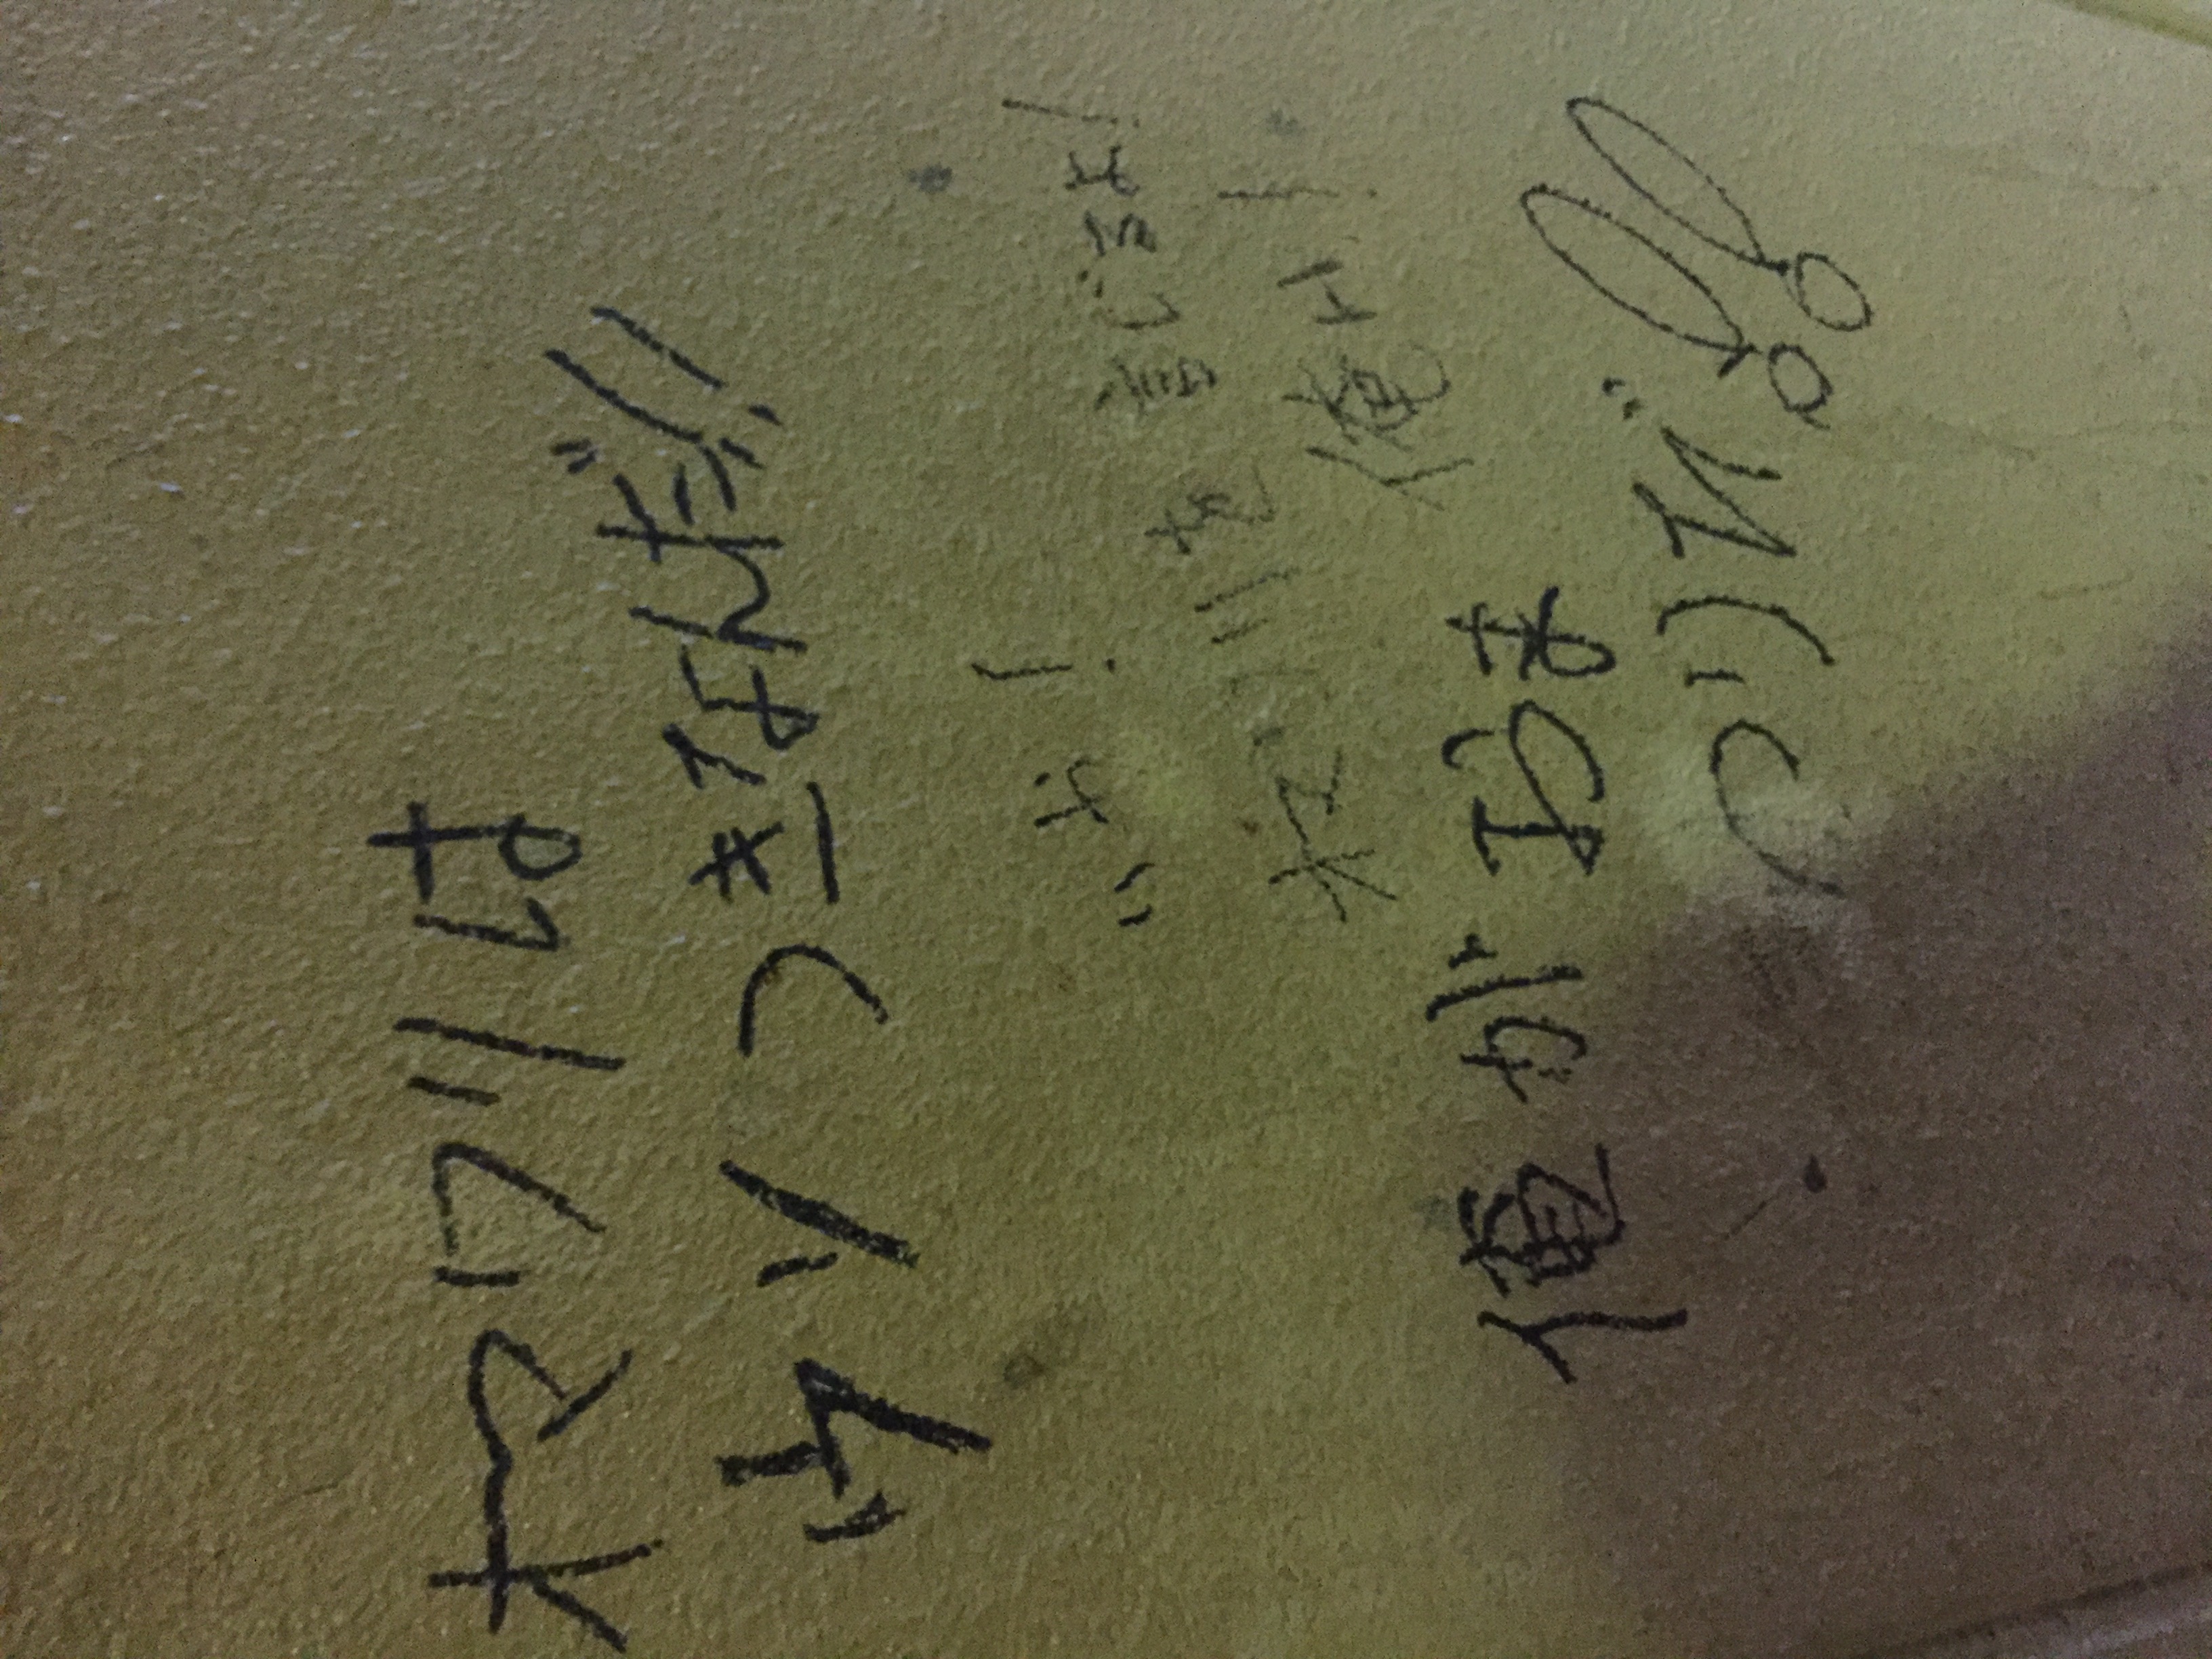 オマワリは
ウソつきなんだ!!
いや!
オマワリを信じるよ!
俺は!
俺がおま
つりだ!!